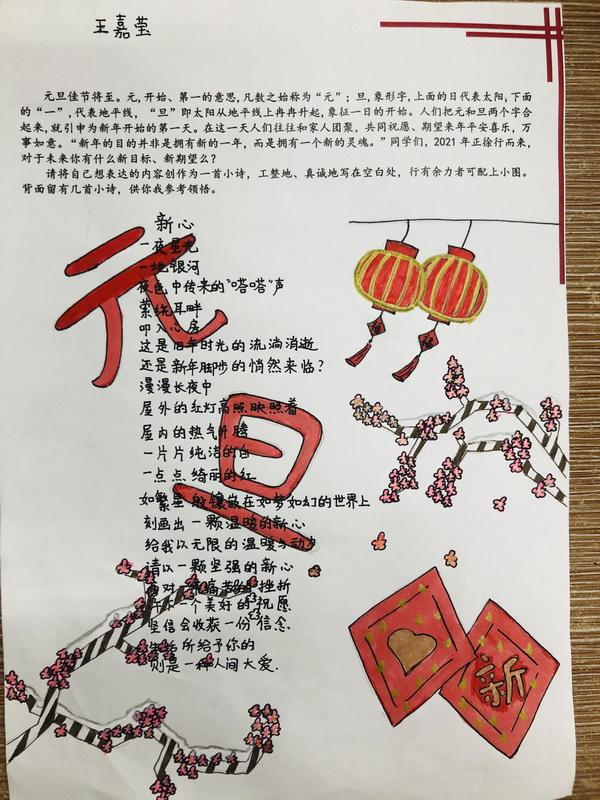 王嘉莹
元旦佳节将至。元,开始、第一的意思,凡数之始称为“元”；旦,象形字,上面的日代表太阳,下面
的“一”,代表地平线，“旦”即太阳从地平线上冉冉升起,象征一日的开始。人们把元和旦两个字合
起来,就引申为新年开始的第一天。在这一天人们往往和家人团聚，共同祝愿、期望来年平安喜乐，万
事如意。“新年的目的并非是拥有新的一年，而是拥有一个新的灵魂。”同学们，2021年正徐行而来，
对于未来你有什么新目标、新期望么？
请将自己想表达的内容创作为一首小诗，工整地、真诚地写在空白处，行有余力者可配上小图。
背面留有几首小诗，供你我参考领悟。
元旦
新心
一夜星光
一地银河
夜色中传来的“嗒嗒”声
萦绕耳畔
叩入心房
这是旧年时光的流淌消逝
还是新年脚步的悄然来临?
漫漫长夜中
屋外的红灯高照映照着
屋内的热气升腾
一片片纯洁的白
一点点绮丽的红
如繁星般镶嵌在如梦如幻的世界上
刻画出一颗温暖的新心
给我以无限的温暖与动力
请以一颗坚强的新心
对 痛苦的挫折
一个美好的祝愿
坚信会收获一份信念
所给予你的
则是一种人间大爱.
新